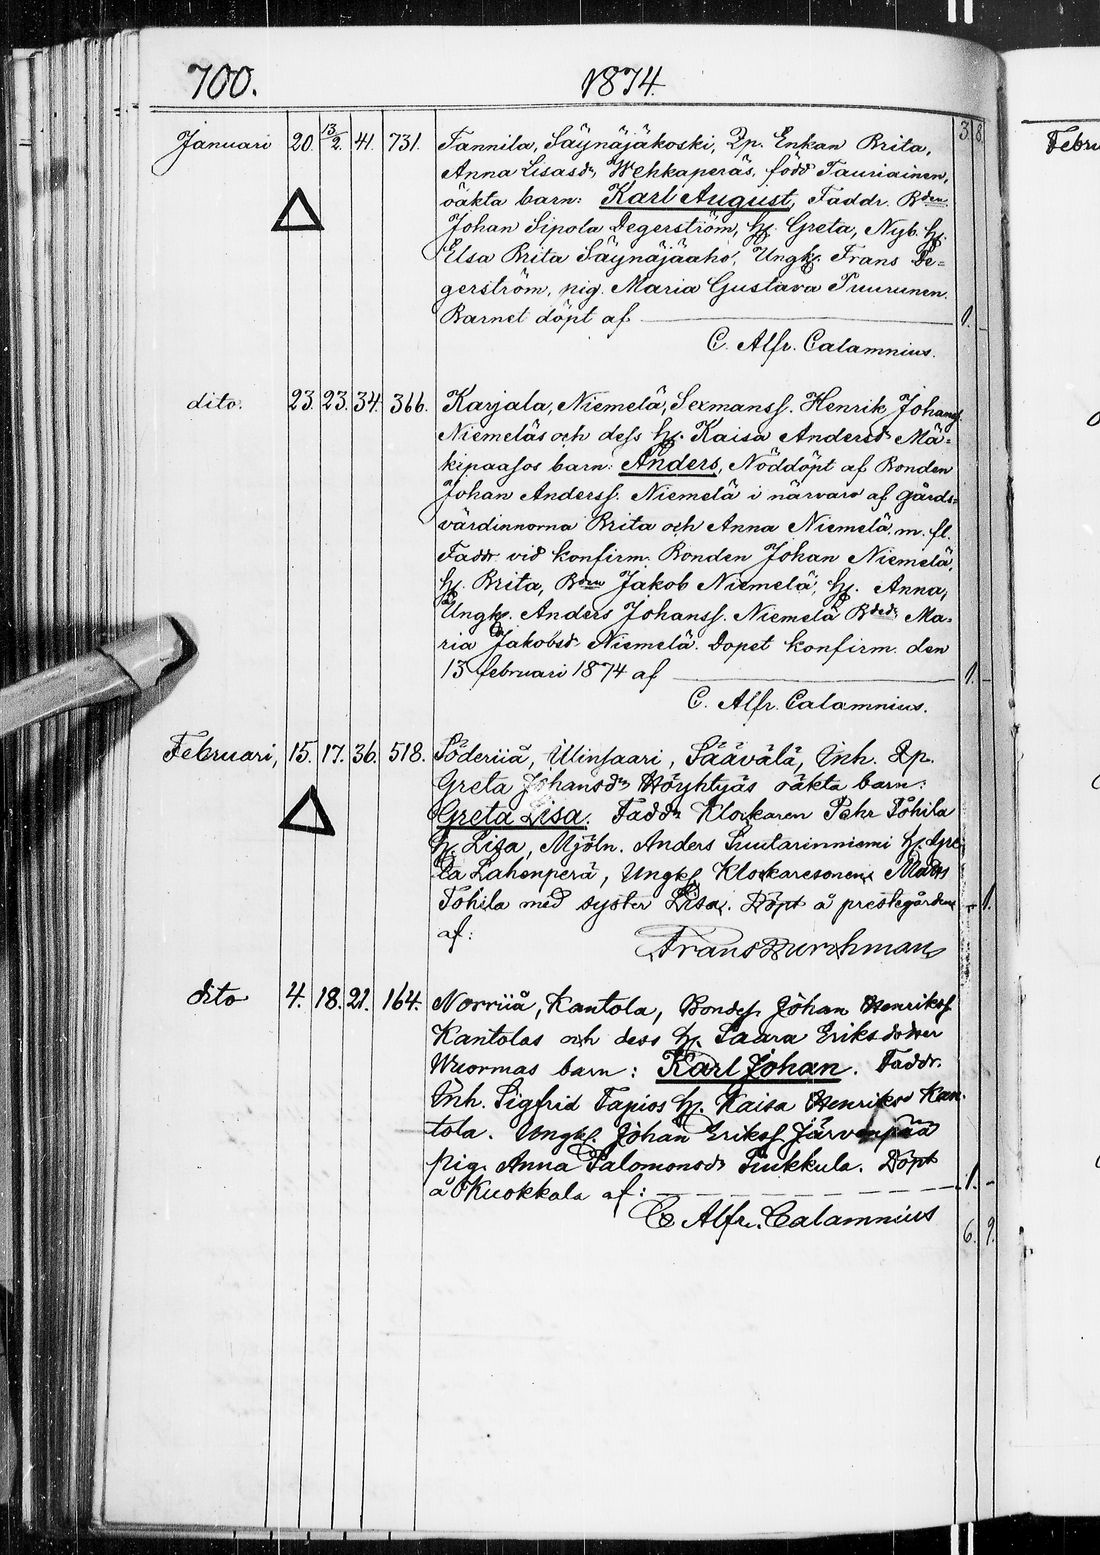 700. 1874
3 8
Januari 20. 13/2. 41. 731. Tannila, Säynäjäkoski, Qp. Enkan Brita,
Anna Lisasdr Wehkaperäs, född Tauriainen,
oäkta barn: Karl August, Faddr. Bden
Johan Sipola Degerström, h. Greta, Nyb. h.
Elsa Brita Säynäjäaho, Ungk. Frans De=
gerström, pig. Maria Gustava Tuurunen.
Barnet döpt af 1. –
C. Alfr. Calamnius.
dito. 23. 23. 34. 366. Karjala, Niemelä, Sexmanss. Henrik Johans
Niemeläs och dess h. Kaisa Andersdr Mä=
kipaasos barn: Anders, Nöddöpt af Bonden
Johan Anderss. Niemelä i närvaro af gårds=
värdinnorna Brita och Anna Niemelä m. fl.
Faddr vid konfirm. Bonden Johan Niemelä,
h. Brita, Bden Jakob Niemelä, h. Anna,
Ungk. Anders Johanss. Niemelä Bdedr Ma=
ria Jakobsdr Niemelä. Dopet konfirm. den
13 februari 1874 af 1. –
C. Alfr. Calamnius.
Februari, 15. 17. 36. 518. Söderiiå, Ulinsaari, Säävälä, Inh. Qp.
Greta Johansdr Höyhtyäs oäkta barn:
Greta Lisa. Faddr Klockaren Pehr Tohila
h. Lisa, Mjöln. Anders Suutarinniemi h. Gre
ta Lahenperä, Ungk. Klockaresonen Matts
Tohila med syster Lisa. Döpt å prestegården
af: – 1.
Frans Burchman
dito 4. 18. 21. 164. Norriiå, Kantola, Bondes. Johan Henrikss
Kantolas och dess h. Saara Eriksdotter
Wuormas barn: Karl Johan. Faddr.
Inh. Sigfrid Tapios h. Kaisa Henriksd Kan
tola. Ungk. Johan Erikss Järvenpää
pig. Anna Salomonsdr Tuukkula. Döpt
å Kuokkala af: 1. –
C Alfr. Calamnius
6. 9.
Febru